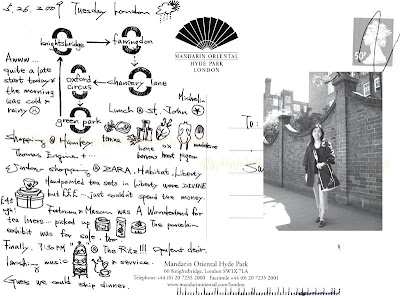 5.26.2009 Tuesday London
knightsbridge → farringdon
Awww...
quite a late
start today &
the morning
was cold &
rainy
oxford
circus
chancery lane
green park
Michelin
Lunch @ St. John
Shopping @
bone
wood
pigeon
madeleine
Thomas
Window shopping @ ZARA, Habitat, Liberty
Handpainted tea sets in Liberty were DIVINE
but £££ ... just couldn't spend the money.
Fortnum & Mason was A Wonderland for
tea lovers... picked up
The porcelain
exhibit was for sale, too
Finally, 7:30 PM @ The Ritz!!! Opulent decor,
music & service.
Guess we could skip dinner.
MANDARIN ORIENTAL
HYDE PARK
LONDON
50
To:
Mandarin Oriental Hyde Park
66 Knightsbridge, London SW1X 7LA
Telephone +44 (0) 20 7235 2000 Facsimile +44 (0) 20 7235 2001
www.mandarinoriental.com/london